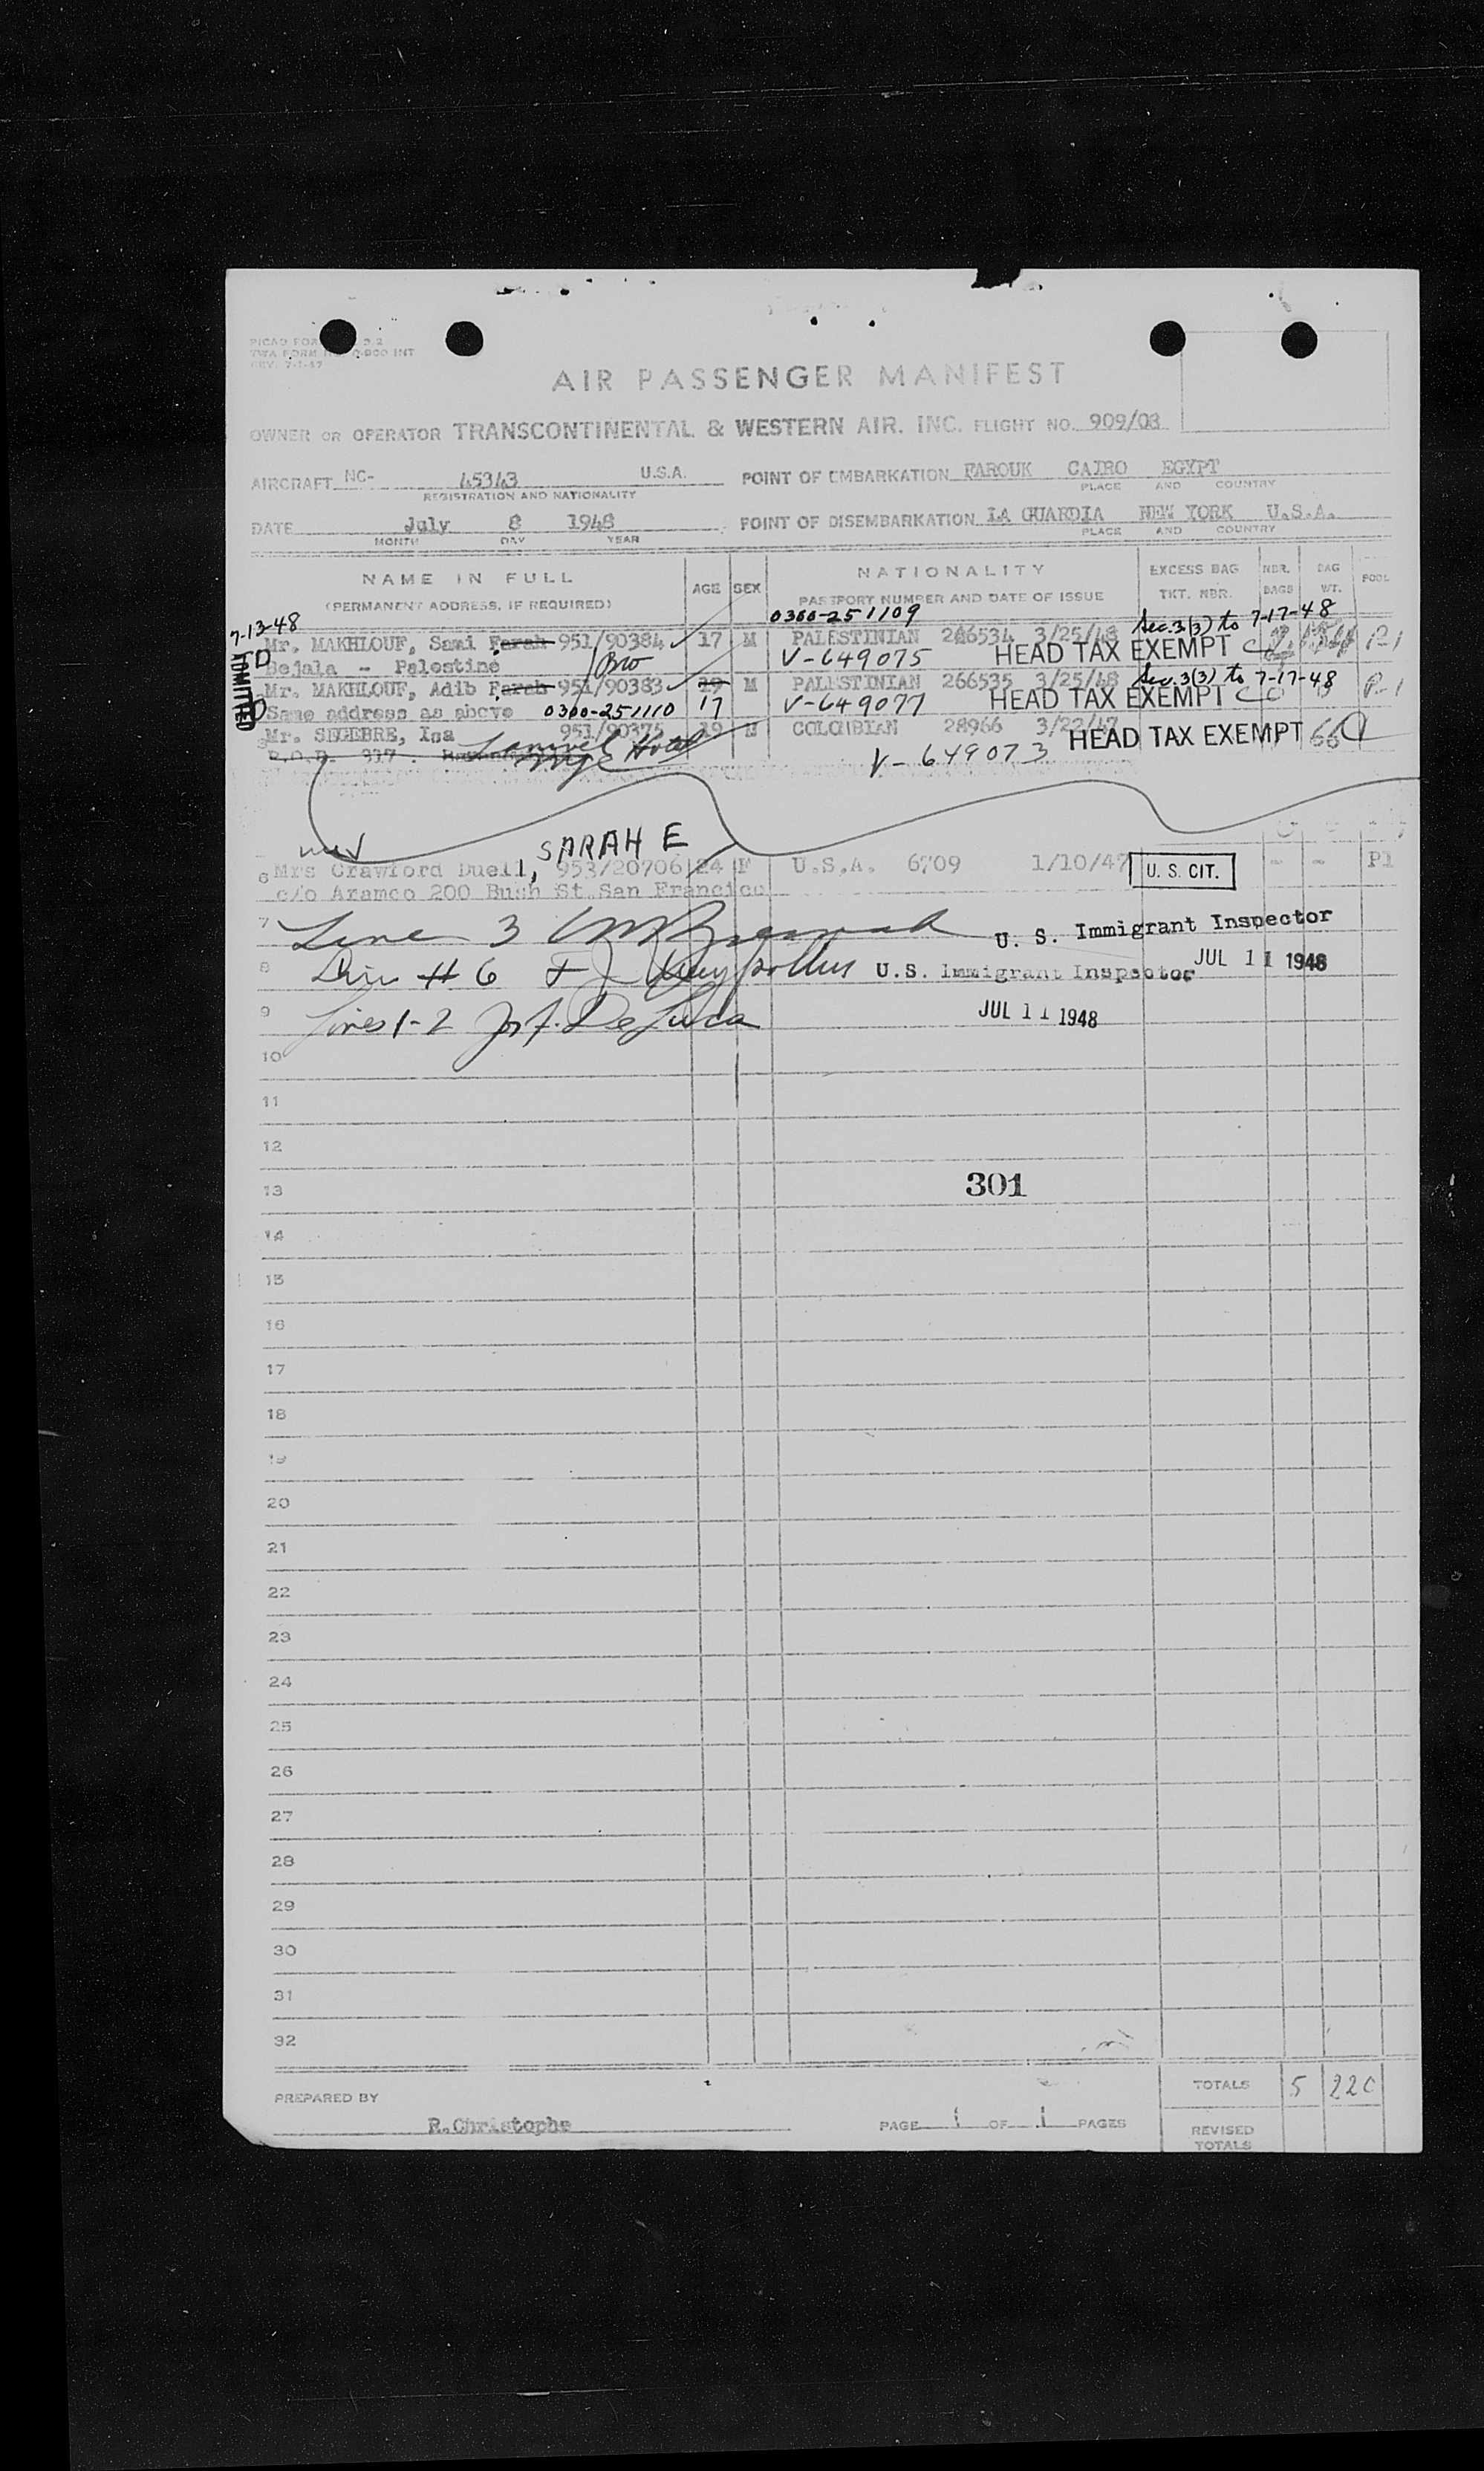 AIR PASSENGER MANIFEST
OWNER OR OPERATOR TRANSCONTINENTAL & WESTERN AIR. INC. FLIGHT NO. 909/08
AIRCRAFT NC- 45343 U.S.A. POINT OF EMBARKATION FAROUK CAIRO EGYPT
REGISTRATION AND NATIONALITY PLACE AND COUNTRY
DATE July 8 1948 POINT OF DISEMBARKATION LA GUARDIA NEW YORK U.S.A.
MONTH DAY YEAR PLACE AND COUNTRY
NAME IN FULL AGE SEX NATIONALITY EXCESS BAG NBR. BAG POOL
(PERMANENT ADDRESS, IF REQUIRED) PASSPORT NUMBER AND DATE OF ISSUE TKT. NBR. BAGS WT.
7-13-48 0300-251109 Sec. 3(3) to 7-17-48
Mr. MAKHLOUF, Sami Farah 951/90384 17 M PALESTINIAN 266534 3/25/48
ADMITTED
Bejala - Palestine Bro V-649075 HEAD TAX EXEMPT
Mr. MAKHLOUF, Adib Farah 951/90383 19 M PALESTINIAN 266535 3/25/48 Sec. 3(3) to 7-17-48 P-1
Same address as above 0300-251110 17 V-649077 HEAD TAX EXEMPT
Mr. SEGEBRE, Isa 951/90375 19 M COLOMBIAN 28966 3/22/47 HEAD TAX EXEMPT 66
P.O.B. 937 Hotel nyc V-649073
SARAH E
6 Mrs Crawford Duell, 953/20706 24 F U.S.A. 6709 1/10/47 U. S. CIT. - - P1
c/o Aramco 200 Bush St San Francico
7 Line 3 U. S. Immigrant Inspector
8 Line #6 U.S. Immigrant Inspector JUL 11 1948
9 Lines 1-2 Jos. F. De Luca JUL 11 1948
10
11
12
13 301
14
15
16
17
18
19
20
21
22
23
24
25
26
27
28
29
30
31
32
PREPARED BY TOTALS 5 220
R.Christophe PAGE 1 OF 1 PAGES REVISED
TOTALS